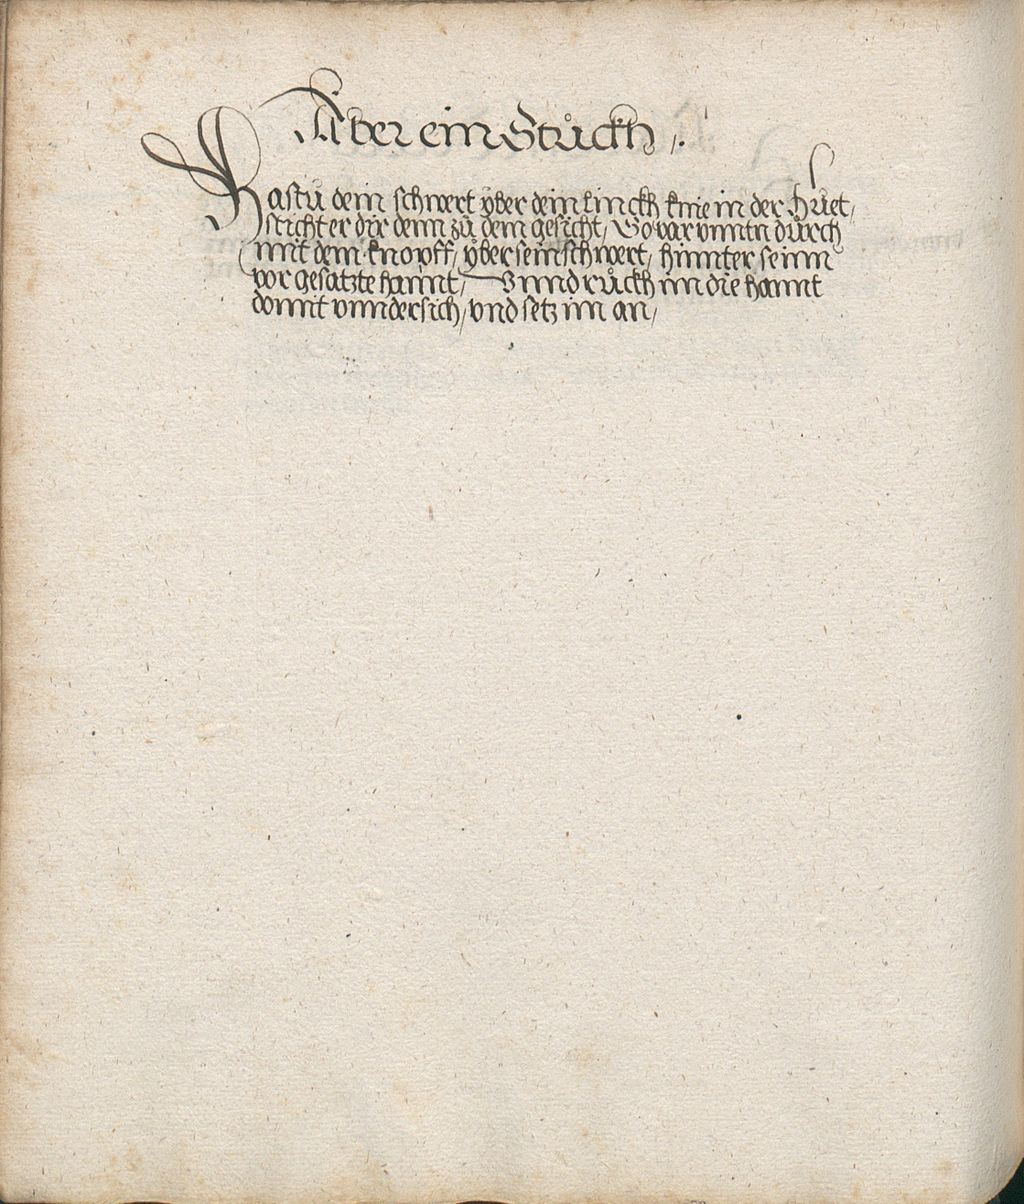 Aber ein Stůckh /.
Hastů dein schwert ÿber dein linckh knie in der Hůet /
sticht er dir denn zů dem gesicht / So var vnntn důrch
mit dem knopff / ÿber sein schwert / hinnter seinn
vor gesatzte hannt / Vnnd růckh im die hannt
domit vnndersich / vnd setz im an /